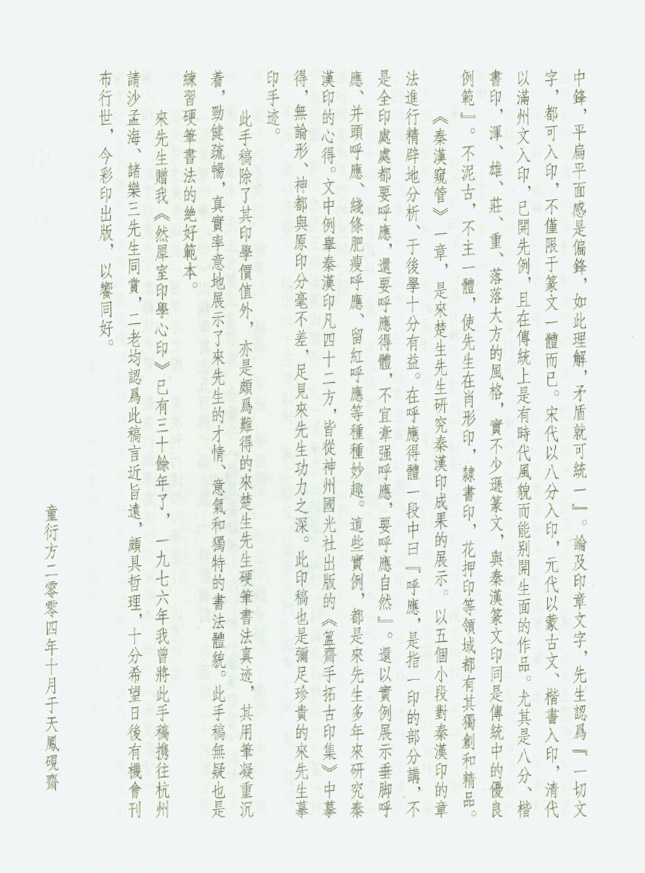 中鋒，平扁平面感是偏鋒，如此理解，矛盾就可統一』。論及印章文字，先生認爲『一切文
字，都可入印，不僅限于篆文一體而已。宋代以八分入印，元代以蒙古文、楷書入印，清代
以滿州文入印，已開先例，且在傳統上是有時代風貌而能别開生面的作品。尤其是八分、楷
書印，渾、雄、莊、重、落落大方的風格，實不少遜篆文，與秦漢篆文印同是傳統中的優良
例範』。不泥古，不主一體，使先生在肖形印，隸書印，花押印等領域都有其獨創和精品。
《秦漢窺管》一章，是來楚生先生研究秦漢印成果的展示。以五個小段對秦漢印的章
法進行精辟地分析、于後學十分有益。在呼應得體一段中曰『呼應，是指一印的部分講，不
是全印處處都要呼應，還要呼應得體，不宜牽强呼應，要呼應自然』。還以實例展示垂脚呼
應、并頭呼應、綫條肥瘦呼應、留紅呼應等種種妙趣。這些實例，都是來先生多年來研究秦
漢印的心得。文中例舉秦漢印凡四十二方，皆從神州國光社出版的《簠齋手拓古印集》中摹
得，無論形、神都與原印分毫不差，足見來先生功力之深。此印稿也是彌足珍貴的來先生摹
印手迹。
此手稿除了其印學價值外，亦是頗爲難得的來楚生先生硬筆書法真迹，其用筆凝重沉
着，勁健疏暢，真實率意地展示了來先生的才情、意氣和獨特的書法體貌。此手稿無疑也是
練習硬筆書法的絶好範本。
來先生贈我《然犀室印學心印》已有三十餘年了，一九七六年我曾將此手稿携往杭州
請沙孟海、諸樂三先生同賞，二老均認爲此稿言近旨遠，頗具哲理，十分希望日後有機會刊
布行世，今彩印出版，以饗同好。
童衍方二零零四年十月于天鳳硯齋